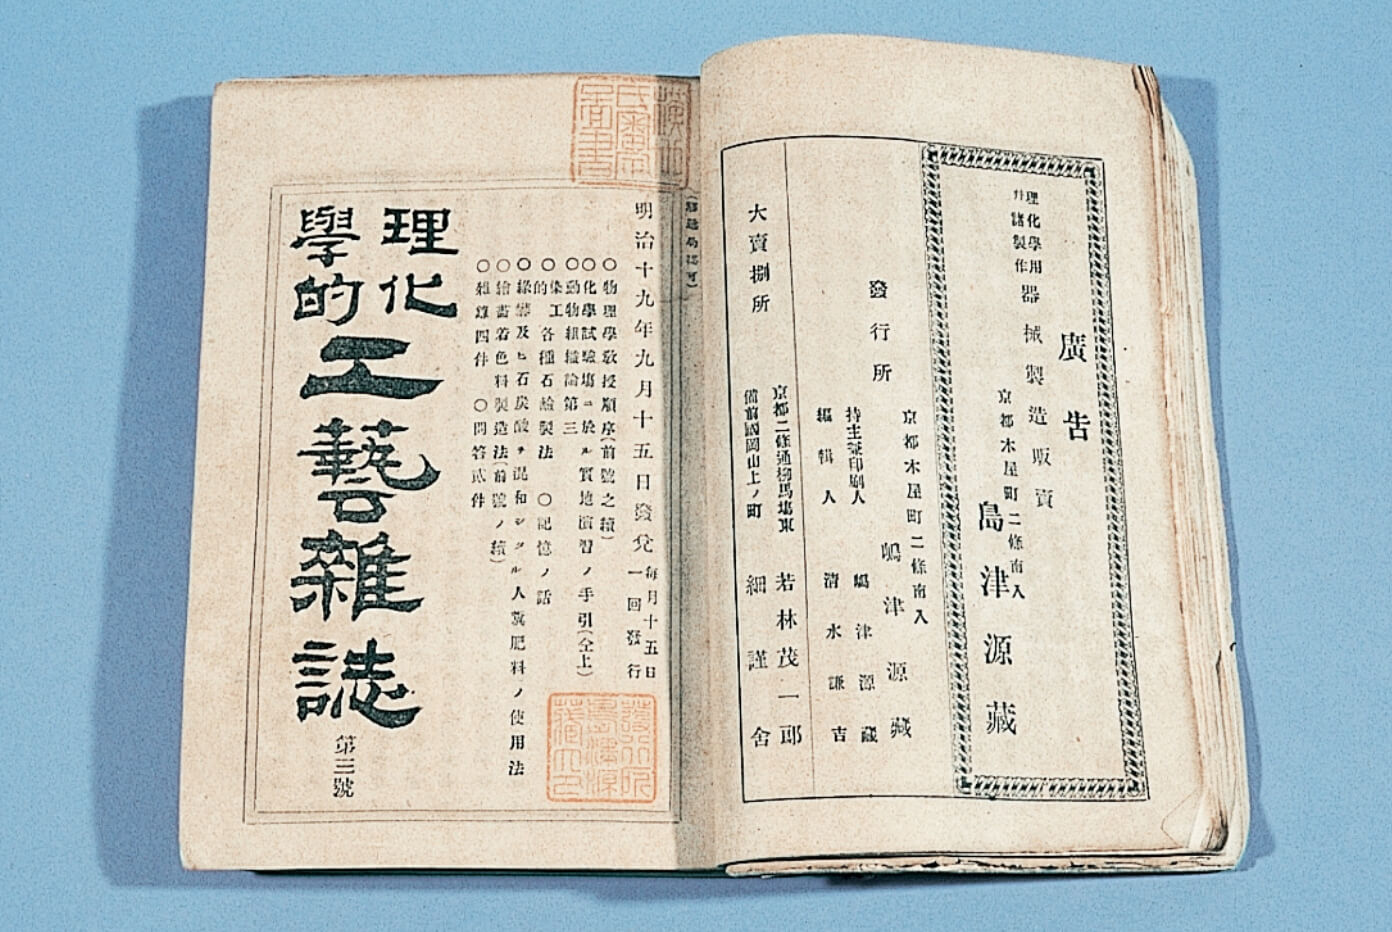 廣告
理化學用
并諸製作
器械製造販賣
京都木屋町二條南入
島津源藏
發行所
京都木屋町二條南入
嶋津源藏
持主兼印刷人 嶋津源藏
編輯人 清水謙吉
大賣捌所
京都二條通柳馬塲東 若林茂一郎
備前國岡山上ノ町 細謹舍
明治十九年九月十五日發兌
每月十五日
一回發行
〇物理學敎授順序(前號之續)
〇化學試驗塲ニ於ル實地演習ノ手引(仝上)
〇動物組織論第三
〇染工
的各種石鹼製法 〇記憶ノ話
〇綠礬及ヒ石炭酸ヲ混和シタル人糞肥料ノ使用法
〇繪畵着色料製造法前號ノ續)
〇雜錄四件 〇問答貳件
理化
學的
工藝雜誌
第三號